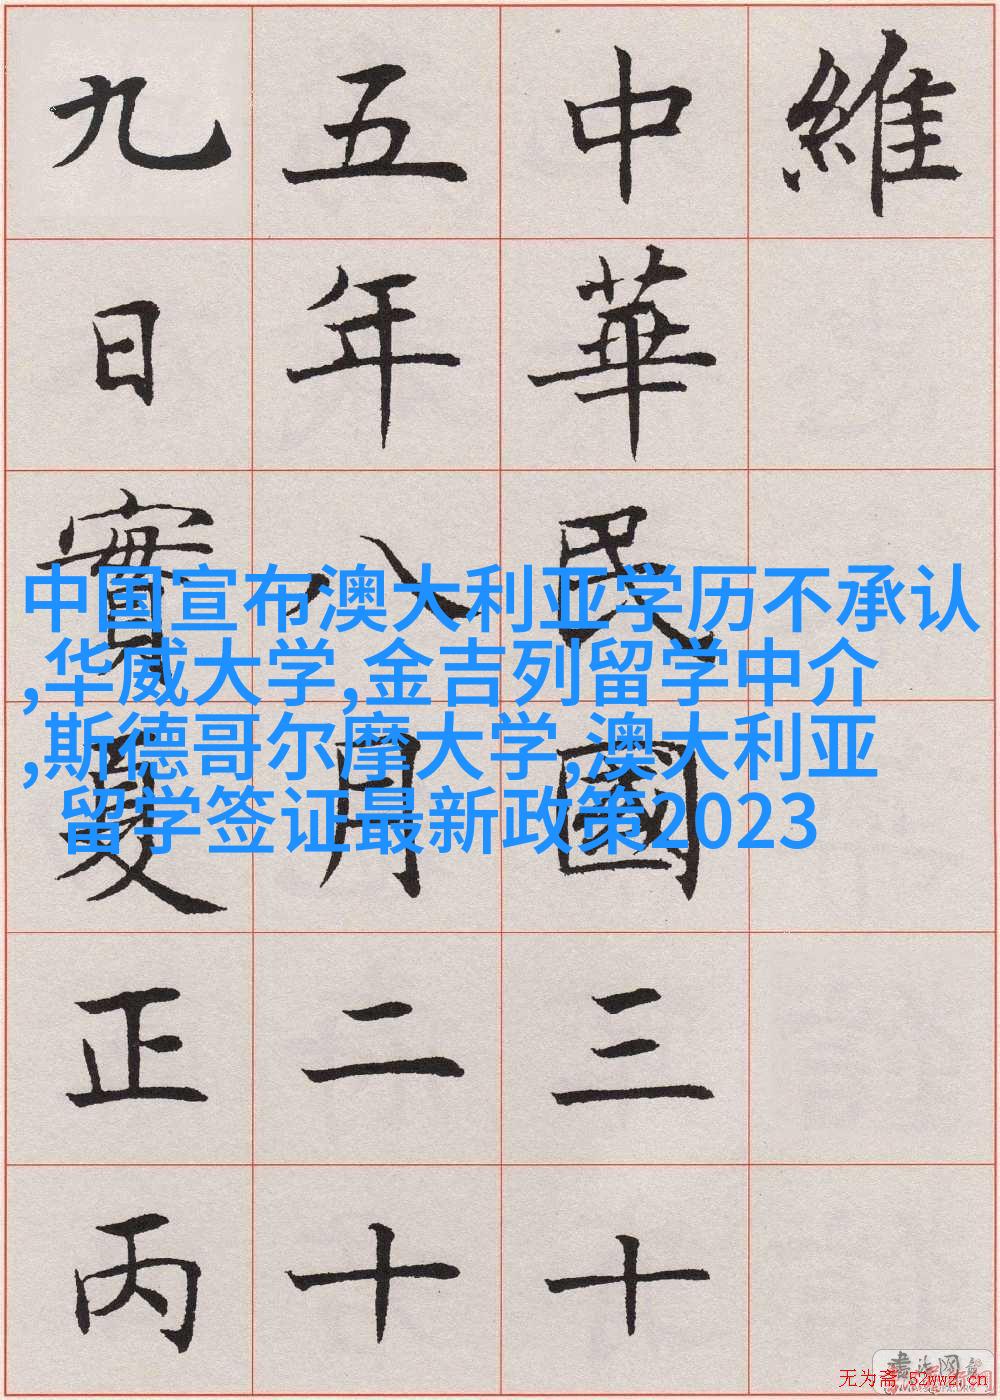 維
中華民國三十
五年八月二十
九日實夏正丙
中国宣布澳大利亚学历不承认
,华威大学,金吉列留学中介
,斯德哥尔摩大学,澳大利亚
留学签证最新政策2023
无为斋·52wwz.cn